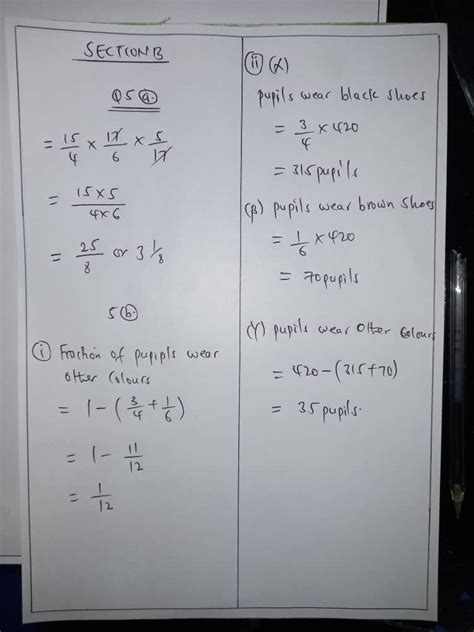 SECTION B
Q5 (a).
= 15/4 × 17/6 × 5/17
= 15×5 / 4×6
= 25/8 or 3 1/8
5 (b).
(i) Fraction of pupipls wear
other colours
= 1 - (3/4 + 1/6)
= 1 - 11/12
= 1/12
(ii) (α)
pupils wear black shoes
= 3/4 × 420
= 315 pupils
(β) pupils wear brown shoes
= 1/6 × 420
= 70 pupils
(γ) pupils wear other colours
= 420 - (315+70)
= 35 pupils.